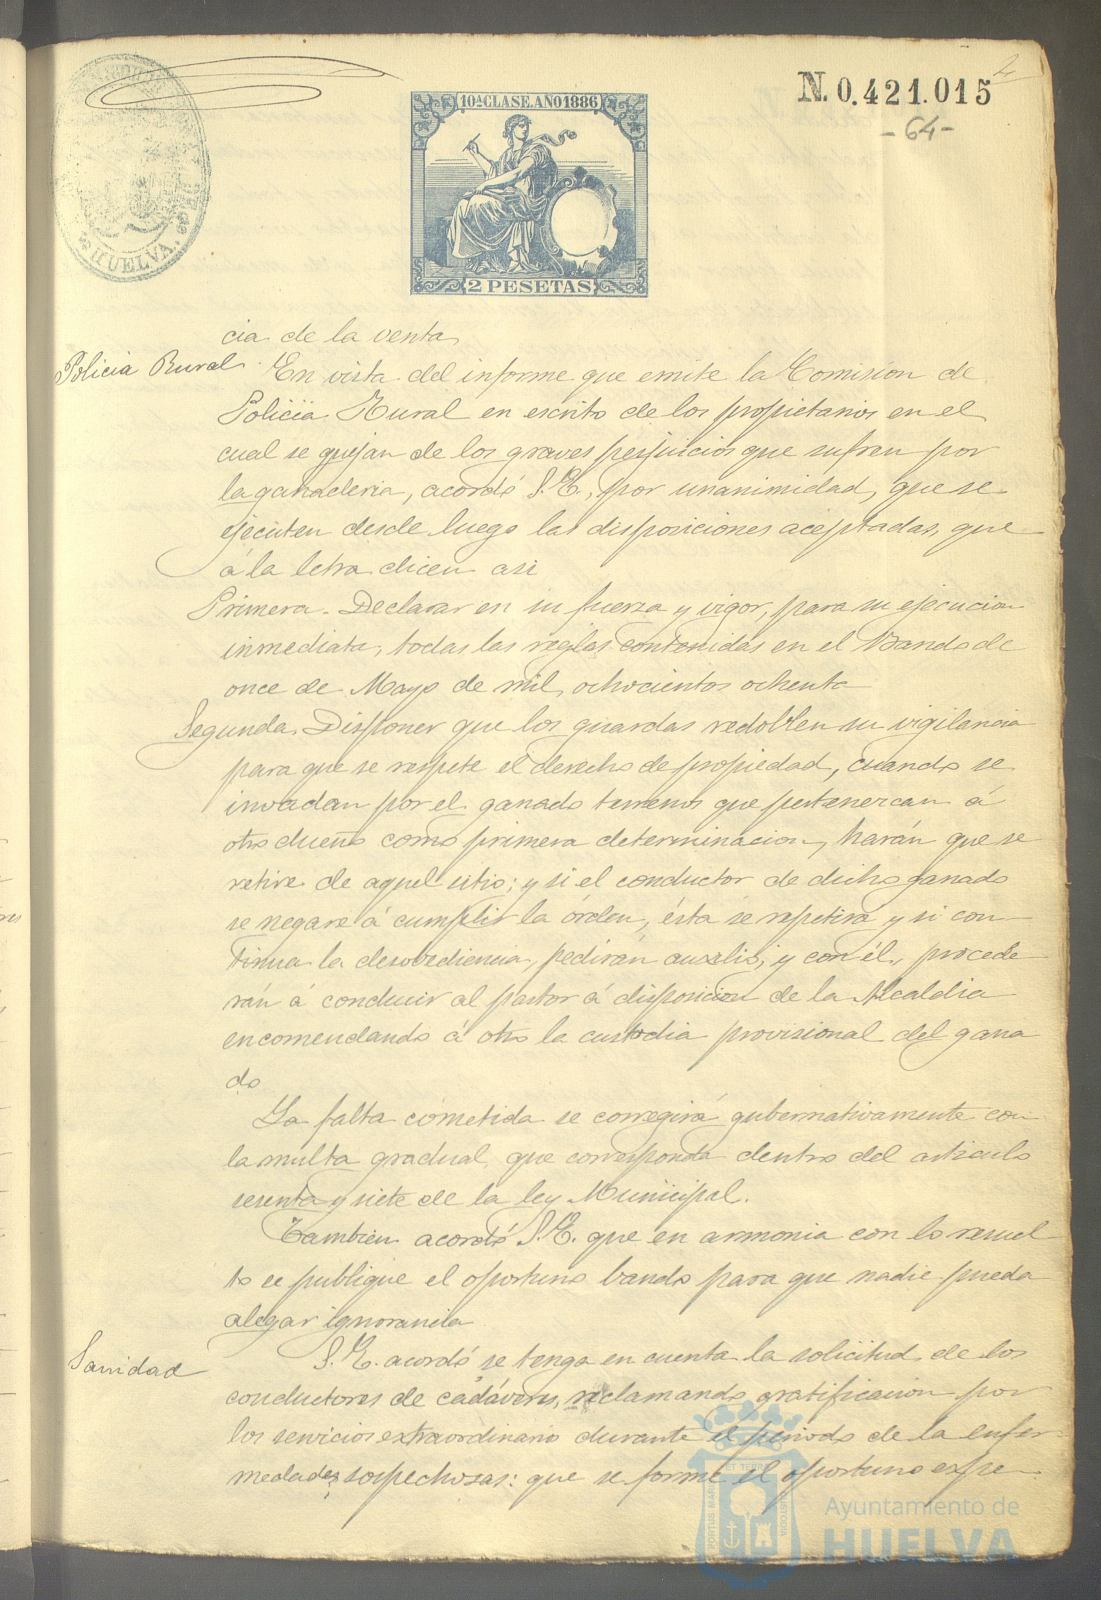 N. 0.421.015
-64-
10ª CLASE. AÑO 1886
2 PESETAS
HUELVA.
cia de la venta
Policia Rural
En vista del informe que emite la Comision de
Policia Rural en escrito de los propietarios en el
cual se quejan de los graves perjuicios que sufren por
la ganaderia, acordó S.E., por unanimidad, que se
ejecuten desde luego las disposiciones aceptadas, que
á la letra dicen asi
Primera. Declarar en su fuerza y vigor, para su ejecucion
inmediata, todas las reglas contenidas en el Bando de
once de Mayo de mil ochocientos ochenta
Segunda. Disponer que los guardas redoblen su vigilancia
para que se respete el derecho de propiedad, cuando se
invadan por el ganado terrenos que pertenezcan á
otro dueño como primera determinacion, harán que se
retire de aquel sitio; y si el conductor de dicho ganado
se negare á cumplir la órden, ésta se repetira y si con-
tinua la desobediencia, pedirán auxilio; y con él, procede
rán á conducir al pastor á disposicion de la Alcaldia
encomendando á otro la custodia provisional del gana
do
La falta cometida se corregirá gubernativamente con
la multa gradual que corresponda dentro del articulo
sesenta y siete de la ley Municipal.
Tambien acordó S.E. que en armonia con lo resuel-
to se publique el oportuno bando para que nadie pueda
alegar ignorancia
Sanidad
S.E. acordó se tenga en cuenta la solicitud de los
conductores de cadáveres, reclamando gratificacion por
los servicios extraordinario durante el periodo de la enfer-
medades sospechosas: que se forme el oportuno expe-
Ayuntamiento de
HUELVA